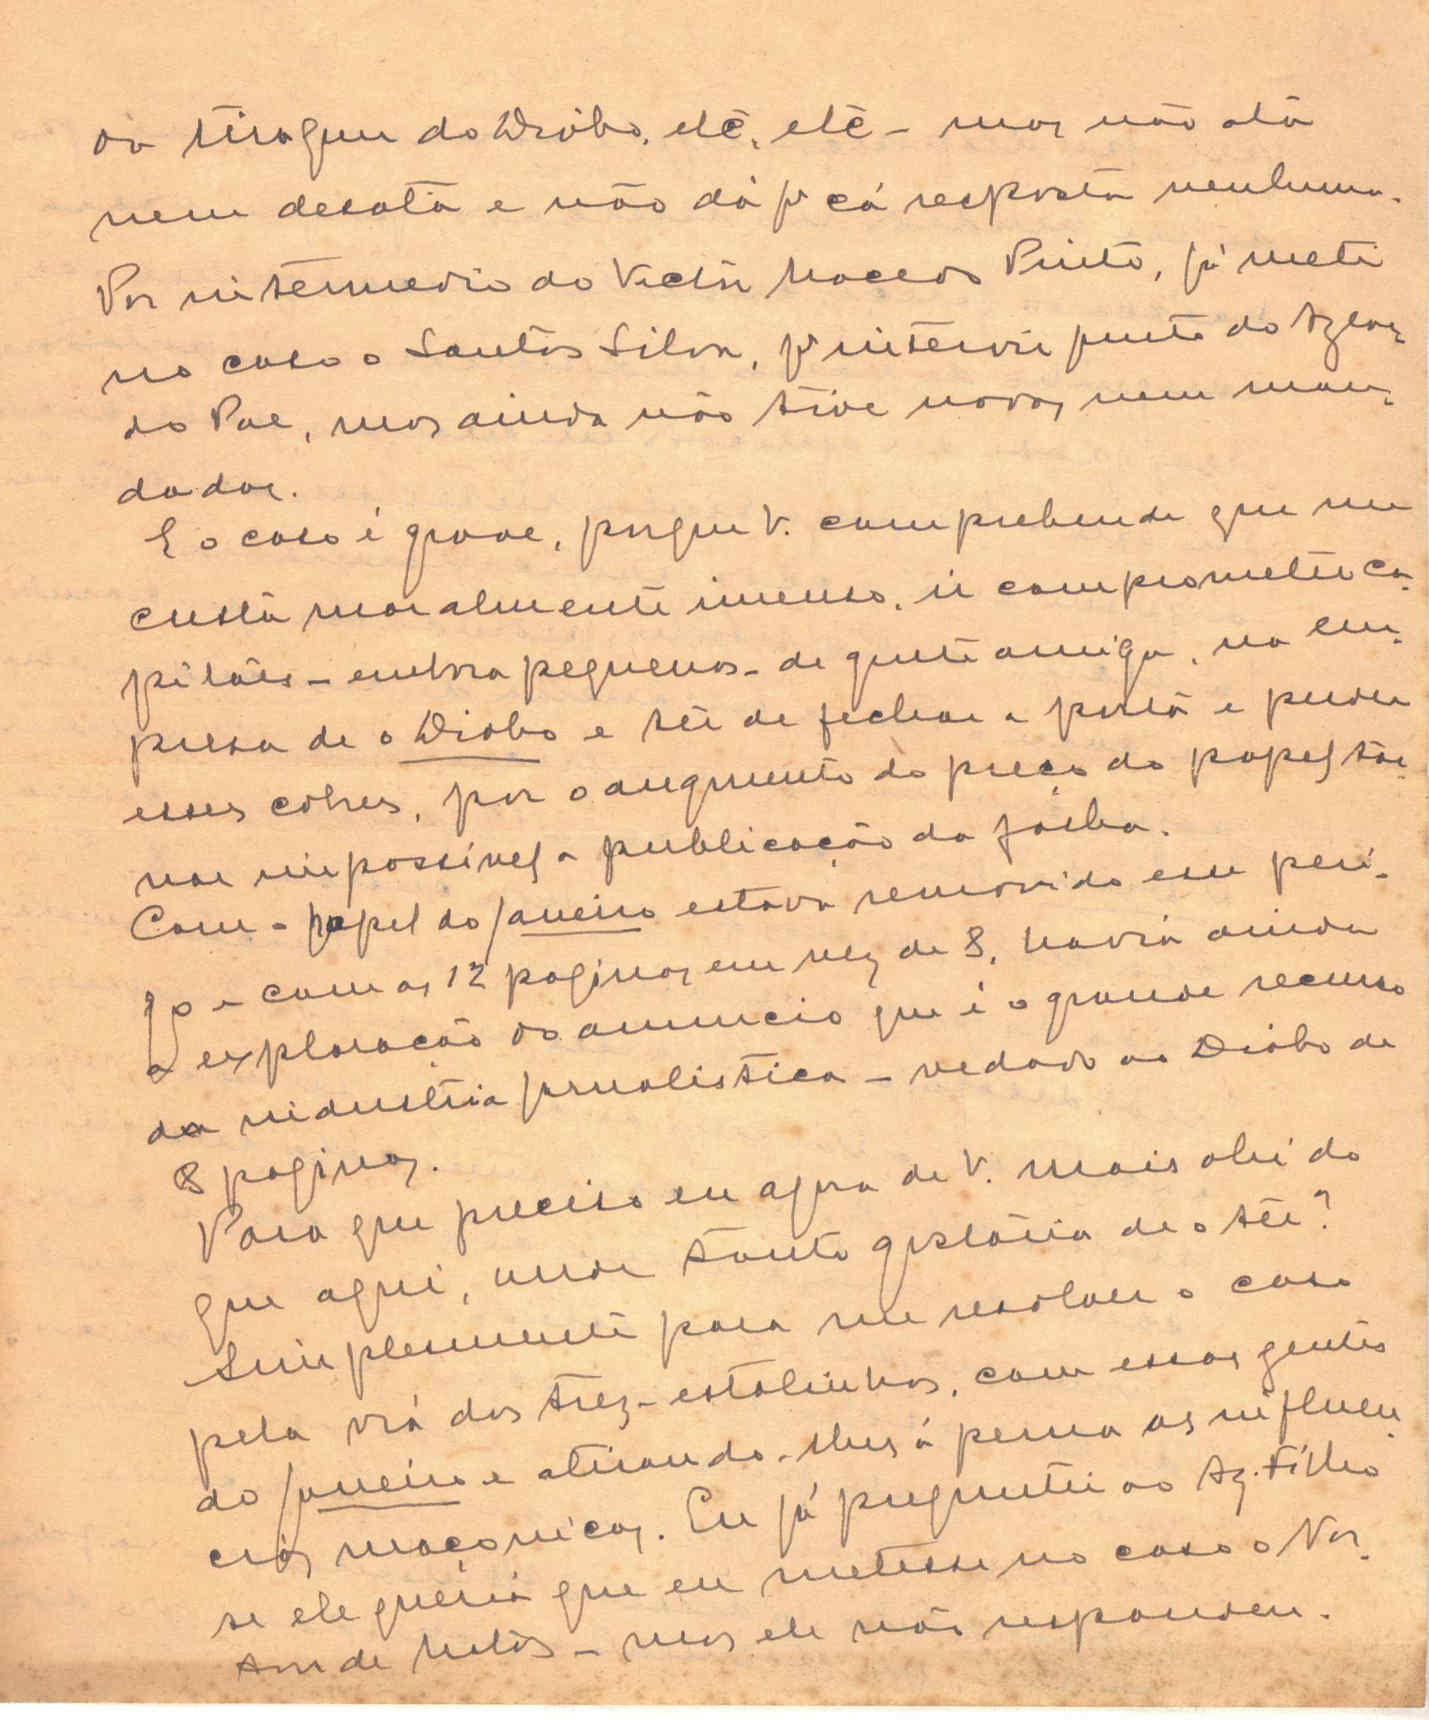 da tiragem do Diabo, etc, etc – mas não ata
nem desata e não dá pª cá resposta nenhuma.
Por intermedio do Victor Macedo Pinto, já meti
no caso o Santos Silva, pª intervir junto do
do Pae, mas ainda não tive novas nem man-
dados.
E o caso é grave, porque V. comprehende que me
custa moralmente imenso, ir comprometer ca-
pitaes – embora pequenos – de gente amiga, na em-
presa de o Diabo e ter de fechar a porta e perder
esses cobres, por o augmento do preço do papel tor-
nar impossivel a publicação da folha.
Com o papel do Janeiro estava removido esse peri-
go e com as 12 paginas em vez de 8, havia ainda
a exploração do anuncio que é o grande recurso
da industria jornalistica – vedado ao Diabo de
8 paginas.
Para que preciso eu agora de V. mais ahi do
que aqui, onde tanto gostaria de o ter?
Simplesmente para me resolver o caso
pela via dos trez-estalinhos, com essas gentes
do Janeiro e atirando-lhes á perna as influen-
cias maçonicas. Eu já preguntei ao Az. Filho
se ele queria que eu metesse no caso o Nor-
ton de Matos – mas ele não respondeu.